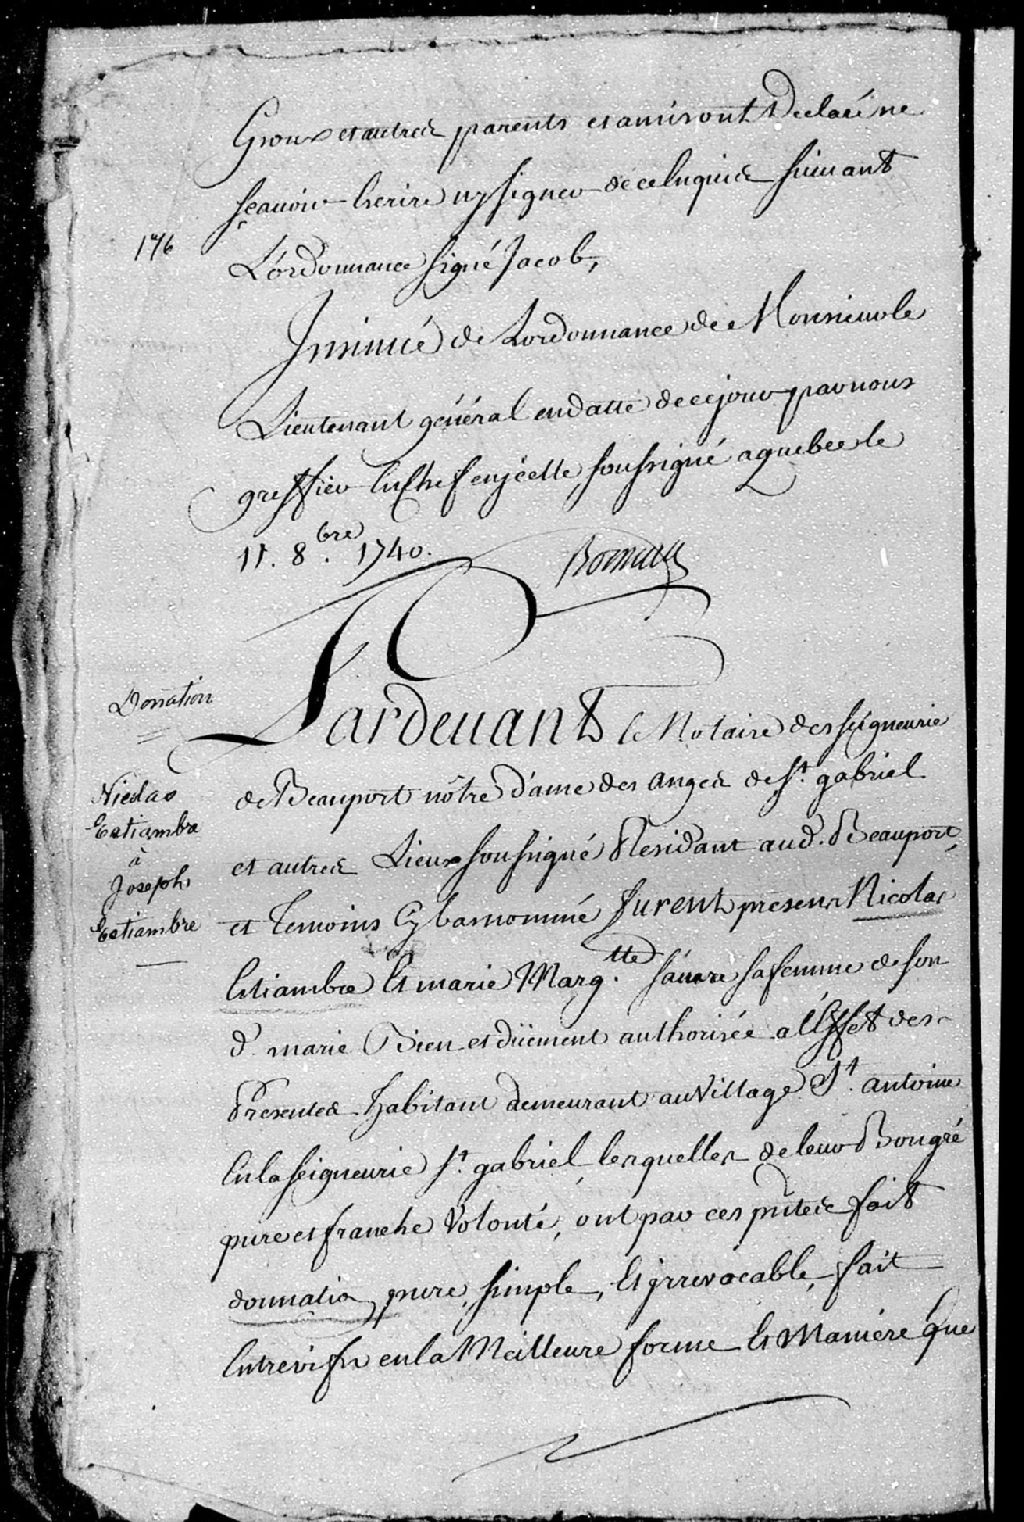 Groux et autres parents et amis ont declaré ne
sçavoir Ecrire ny signer de ce Enquis suivant
176
L'ordonnance signé Jacob,
Insinué de Lordonnance de Monsieur le
Lieutenant général en datte de ce jour par nous
greffier En Chef en jcelle soussigné a quebec le
11. 8.bre 1740.
Boisseau
Donation
Nicolas
Estiambre
à
Joseph
Estiambre
Pardevant Le Notaire des seigneuries
de Beauport nôtre dame des anges de St. gabriel
et autres Lieux soussigné Residant aud. Beauport,
et temoins Cy bas nommé furent presens Nicolas
Estiambre Et marie Marg.tte sa femme de son
d. marie Bien et düement authorisée a l'Effet des
Presentes habitant demeurant au Village St. antoine
En la seigneurie St. gabriel, lesquelles de leur Bon gré
pure et franche Volonté, ont par ces pntes fait
donnation pure, simple, Et jrrevocable, fait
Entre vifs en la Meilleure forme Et Maniere que